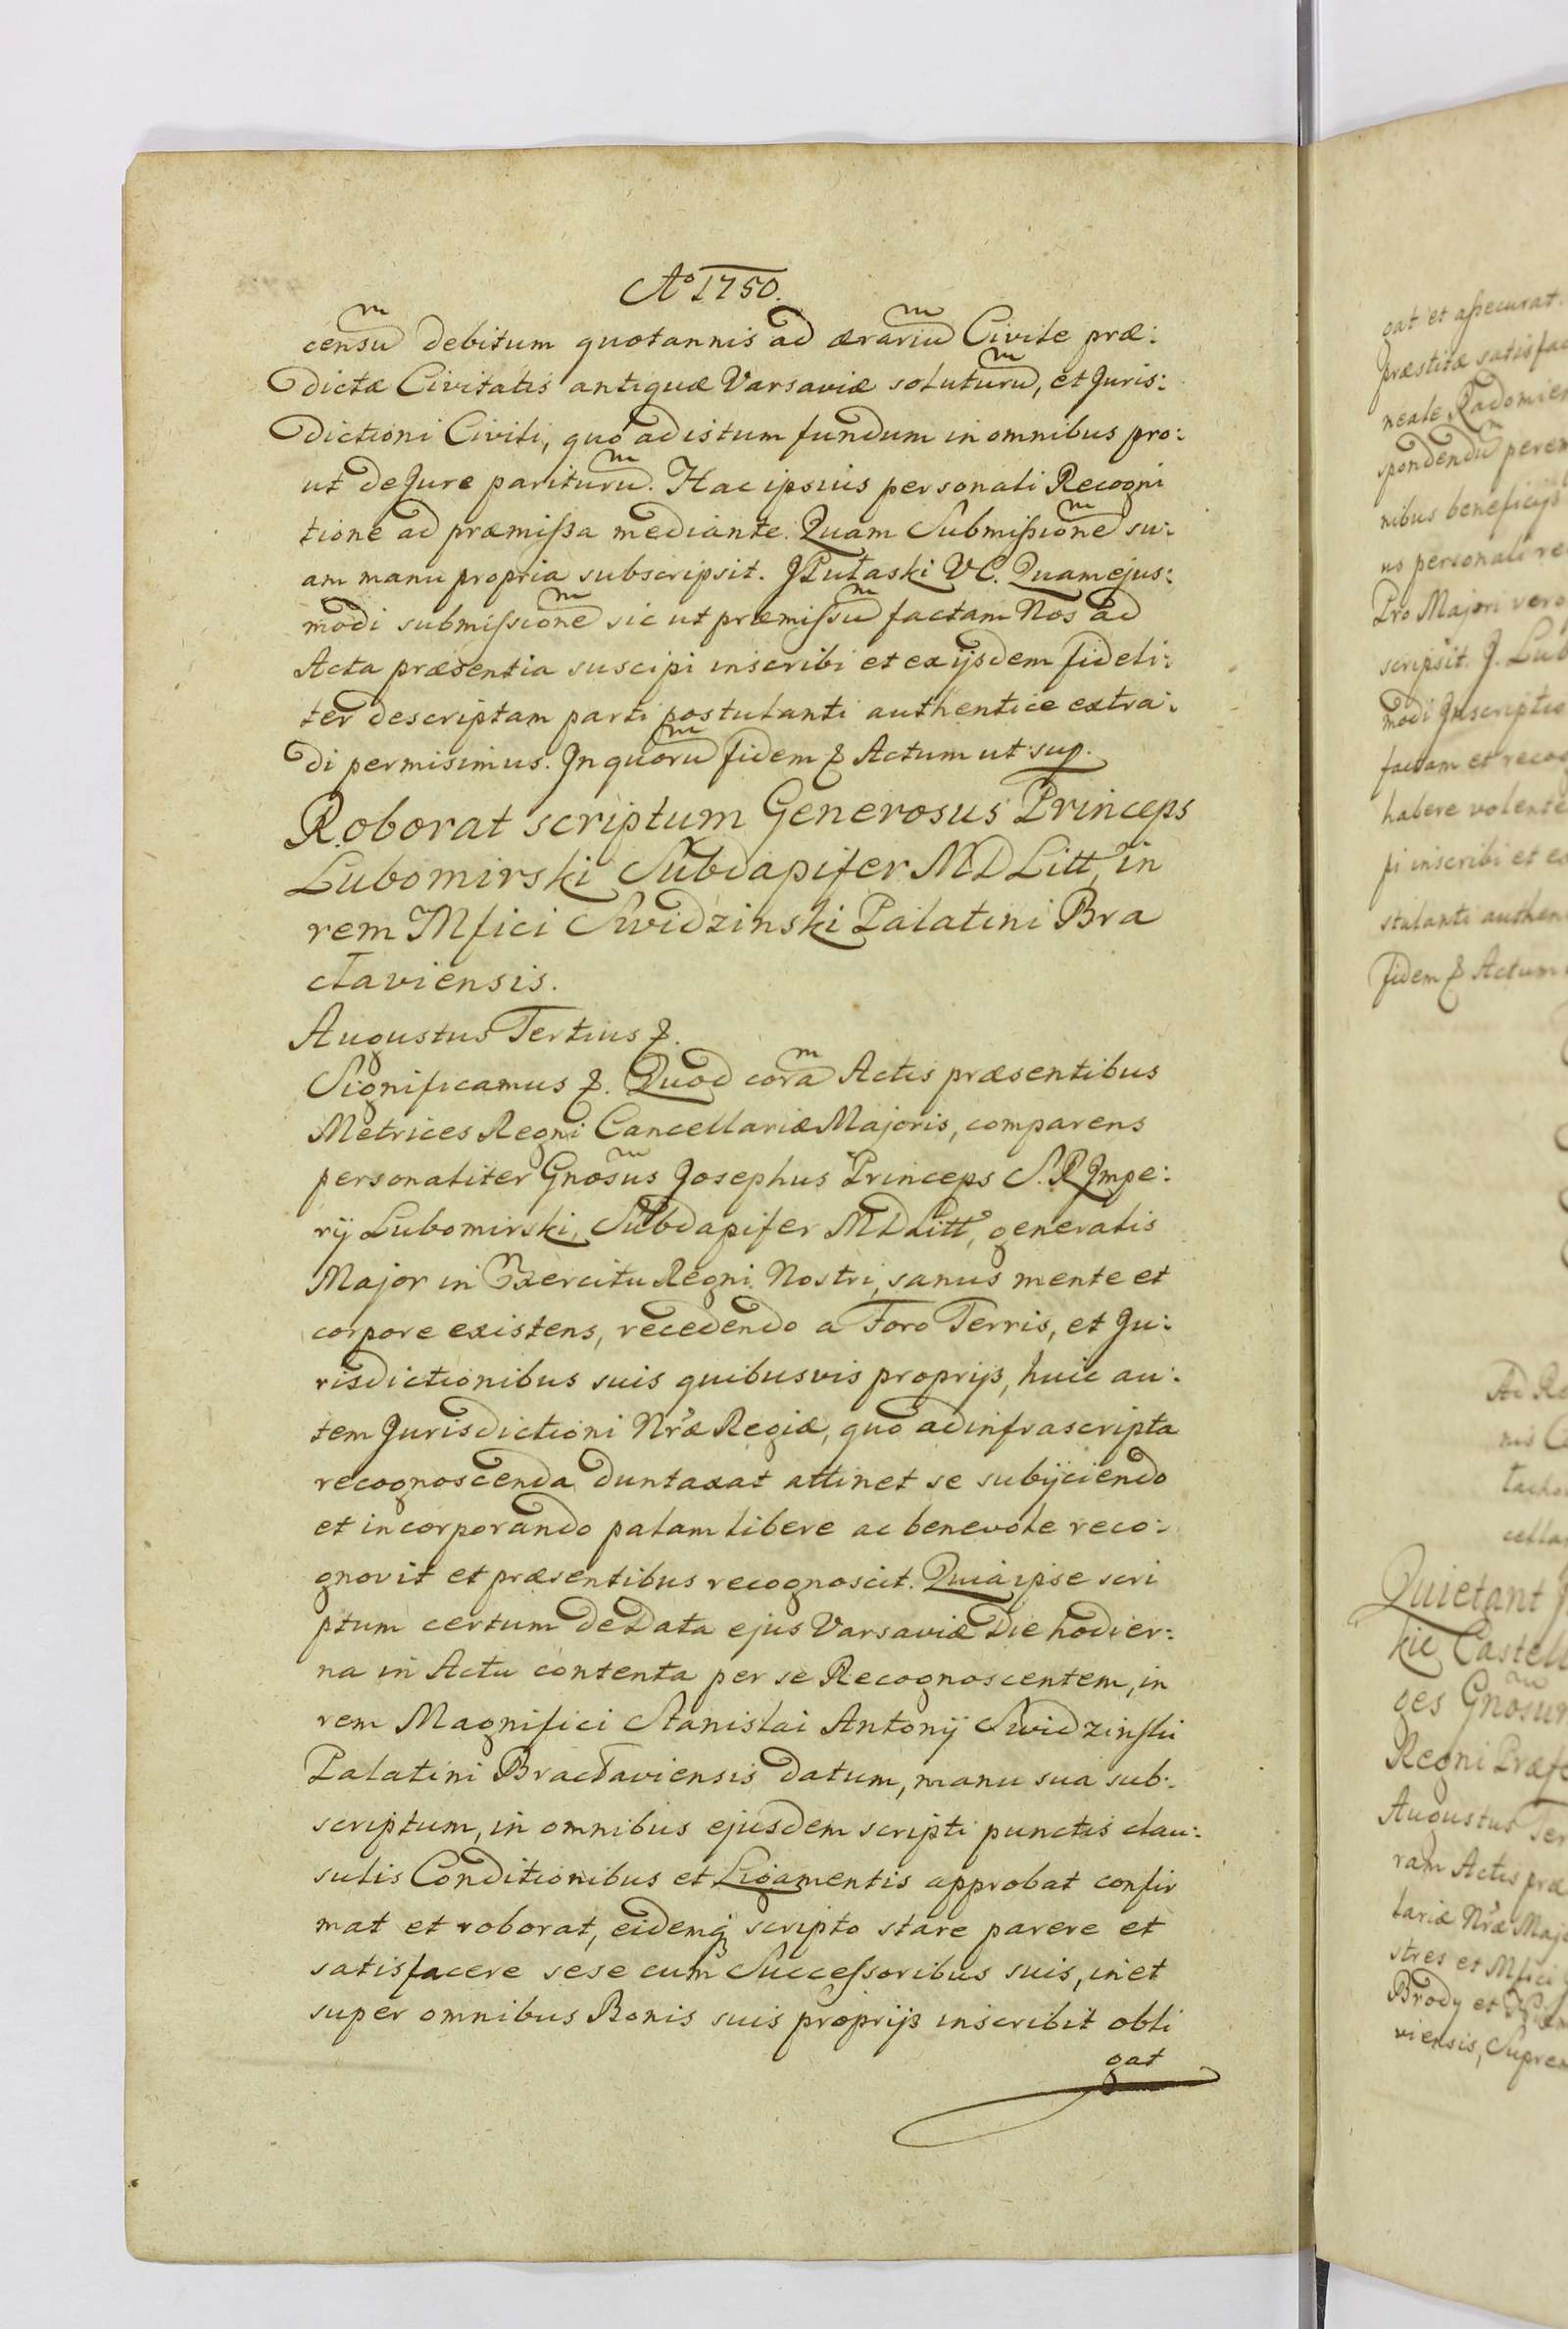 Aº 1750.
censu͠ debitum quotannis ad ærariu͠ Civile præ:
dictæ Civitatis antiquæ Varsaviæ soluturu͠, et Juris:
dictioni Civili, quó ad istum fundum in omnibus pro:
ut de Jure parituru͠. Hac ipsius personali Recogni
tione ad præmissa mediante. Quam Submissione͠ su:
am manu propria subscripsit. JPułaski VC. Quam ejus:
modi submissione͠ sic ut præmissu͠ factam Nos ad
Acta præsentia suscipi inscribi et ex ijsdem fideli:
ter descriptam parti postulanti authentice extra:
di permisimus. In quoru͠ fidem & Actum ut sup.
Roborat scriptum Generosus Princeps
Lubomirski Subdapifer MDLitt, in
rem Mfici Swidzinski Palatini Bra
claviensis.
Augustus Tertius &.
Significamus &. Quod cora͠ Actis præsentibus
Metrices Regni Cancellariæ Majoris, comparens
personaliter Gno͠sus Josephus Princeps S. R Impe:
rij Lubomirski, Subdapifer MDLitt, generalis
Major in Exercitu Regni Nostri, sanus mente et
corpore existens, recedendo a Foro Terris, et Ju:
risdictionibus suis quibusvis proprijs, huic au:
tem Jurisdictioni Nr̃æ Regiæ, quó ad infrascripta
recognoscenda duntaxat attinet se subijciendo
et incorporando palam libere ac benevole reco:
gnovit et præsentibus recognoscit. Quia ipse scri
ptum certum de Data ejus Varsaviæ Die hodier:
na in Actu contenta per se Recognoscentem, in
rem Magnifici Stanislai Antonij Swidzinski
Palatini Braclaviensis datum, manu sua sub:
scriptum, in omnibus ejusdem scripti punctis clau:
sulis Conditionibus et Ligamentis approbat confir
mat et roborat, eidemq scripto stare parere et
satisfacere sese cum Successoribus suis, in et
super omnibus Bonis suis proprijs inscribit obli
gat
gat et assecurat.
præstitæ satisfac
neale Radomien
spondendu͠ perem
nibus beneficijs
us personali re
Pro Majori vero
scripsit. J. Lub
modi Inscriptio
factam et recog
habere volente
pi inscribi et ex
stulanti authen
fidem & Actum
Ad Re
nis C
cellar
Quietant J
kie Castell
ges Gno͠sur
Regni Præfe
Augustus Ter
ram Actis præ
lariæ Nr̃æ Majo
stres et Mfici
Brody et
viensis, Suprem